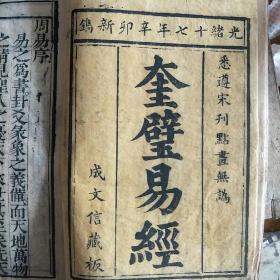 光緒十七年辛卯新鐫
悉遵宋刊點畫無譌
奎璧易經
成文信藏板
周易序
易之為書卦爻彖象之義備而天地萬物